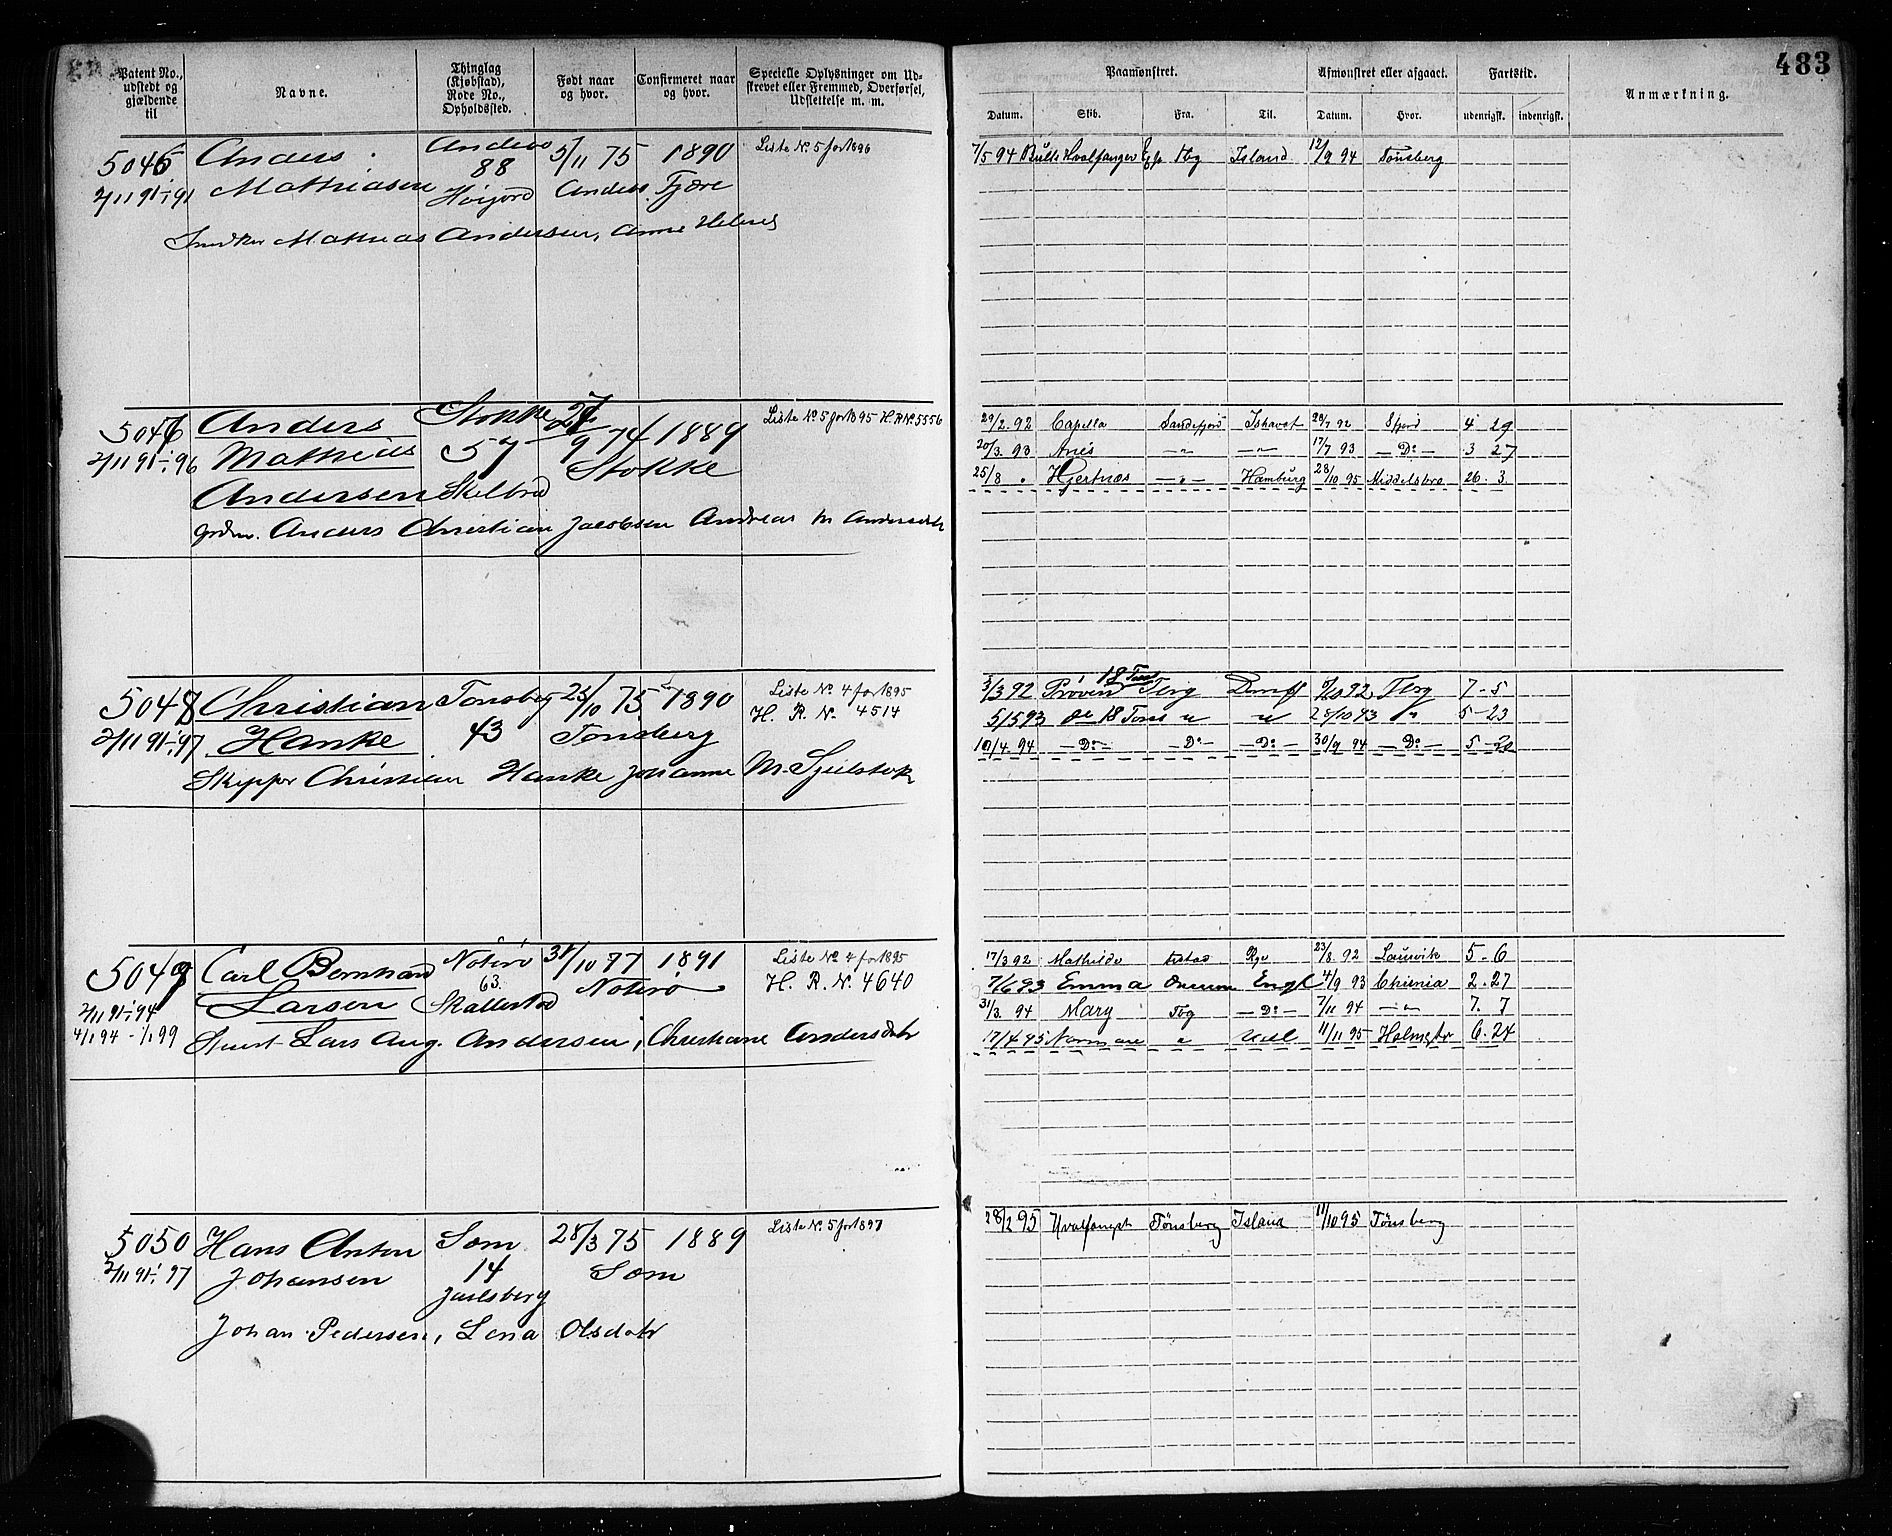 483
Patent No., udstedt og gjældende til
Navne.
Thinglag (Kjøbstad), Rode No., Opholdssted.
Født naar og hvor.
Confirmeret naar og hvor.
Specielle Oplysninger om Udstrevet eller Fremmed, Overførsel, Udslettelse m. m.
Paamønstret.
Afmønstret eller afgaaet.
Fartstid.
Anmærkning.
Datum. Skib. Fra. Til. Datum. Hvor. udenrigsk. indenrigsk.
Anders Andebo 5/11 75 1890 Liste No. 5 for 1896
2/11 91 - 1/1 91 Mathiasen 88 Høijord Andebo Fjære
Snedker Mathias Andersen, Anne Helene
7/5 94 Bulls Hvalfanger Exp Tbg Island 12/9 94 Tønsberg
Anders Stokke 9 74 1889 Liste No. 5 for 1895 H. R. No. 5556
2/11 91 - 1/1 96 Mathias 57 Stokke
Andersen Skelbrd
Grdm. Anders Christian Jacobsen Andrea M Andersdtr
29/2 92 Capella Sandefjord Ishavet 29/7 92 Sfjord 4 29
20/3 93 Aries — " — — " — 17/7 93 — Do — 3 27
25/8 " Hjertnæs — " — Hamburg 28/10 95 Middelsbro 26. 3
5048 Christian Tønsberg 25/10 75 1890 Liste No. 4 for 1895
2/11 91 - 1/1 97 Hanke 43 Tønsberg H. R. No. 4514
Skipper Christian Hanke Johanne M. Sjelstok
3/3 92 Prøven 18 Tbrg 92 Tbrg 7 - 5
5/5 93 do 18 " " 28/10 93 " 5 - 23
10/4 94 — Do — — Do — — Do — 30/9 94 — Do — 5 - 20
5049 Carl Bernhard Nøterø 31/10 77 1891 Liste No. 4 for 1895
2/11 91 - 1/1 94 Larsen 63. Skallestad Nøterø H. R. No. 4640
4/1 94 - 1/1 99 Lars Aug. Andersen, Christiane Andersdtr
17/3 92 Mathilde 23/8 92 Laurvik 5 - 6
7/6 93 Emma Engl 4/9 93 Chrinia 2 - 27
31/3. 94 Mary Tbg — Do — 7/11 94 — " — 7. 7
17/4 95 Normane " Udl 11/11 95 Holmestr 6. 24
5050 Hans Anton Sem 28/3 75 1889 Liste No. 5 for 1897
2/11 91 - 1/1 97 Johansen 14 Sem
Jarlsberg
Johan Pedersen, Lena Olsdatr
28/2 95 Hvalfangst Tønsberg Island 11/10 95 Tønsberg